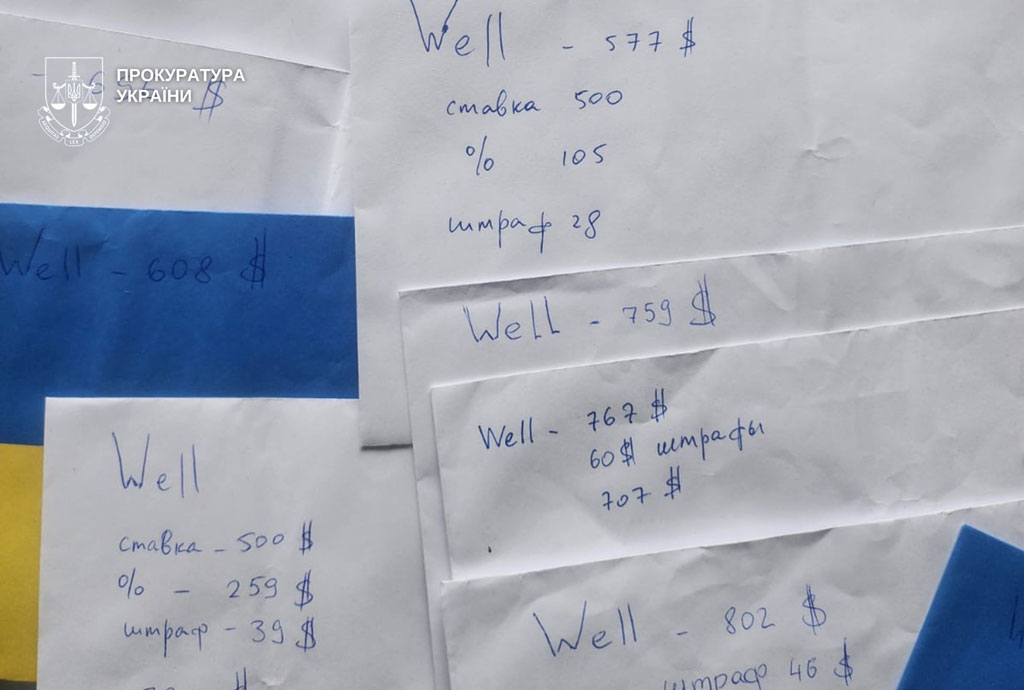 ПРОКУРАТУРА
УКРАЇНИ
Well - 577 $
ставка 500
% 105
штраф 28
Well - 608 $
Well - 759 $
Well - 767 $
60$ штрафы
707 $
Well
ставка - 500 $
% - 259 $
штраф - 39 $
Well - 802 $
штраф 46 $